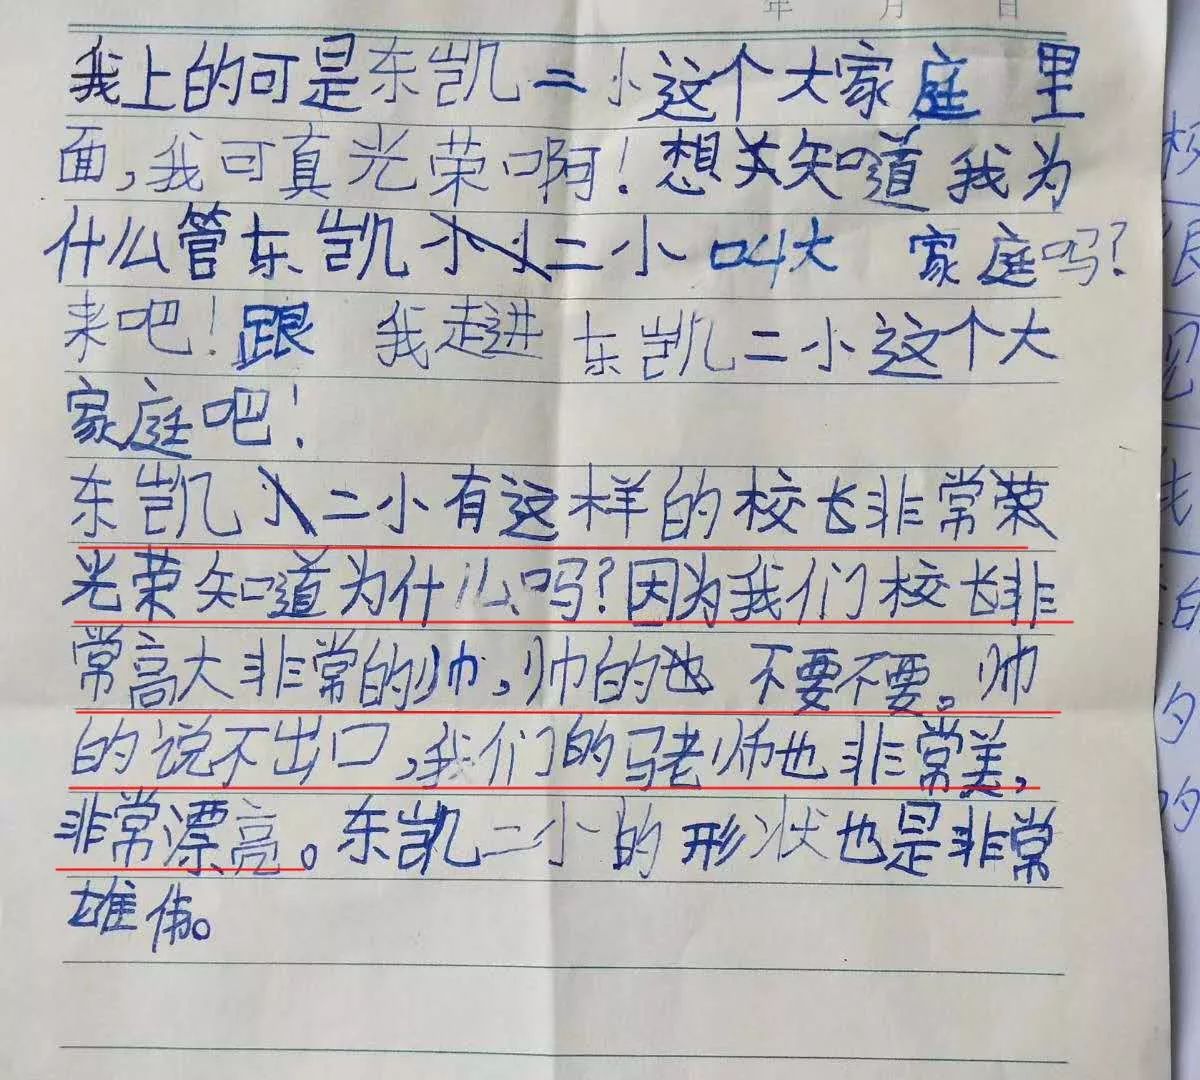 年 月 日
我上的可是东凯二小这个大家庭里
面,我可真光荣啊!想关知道我为
什么管东凯小小二小叫大家庭吗?
来吧!跟我走进东凯二小这个大
家庭吧!
东凯小二小有这样的校长非常荣
光荣知道为什么吗?因为我们校长非
常高大非常的帅,帅的也不要不要。帅
的说不出口,我们的马老师也非常美,
非常漂亮。东凯二小的形状也是非常
雄伟。